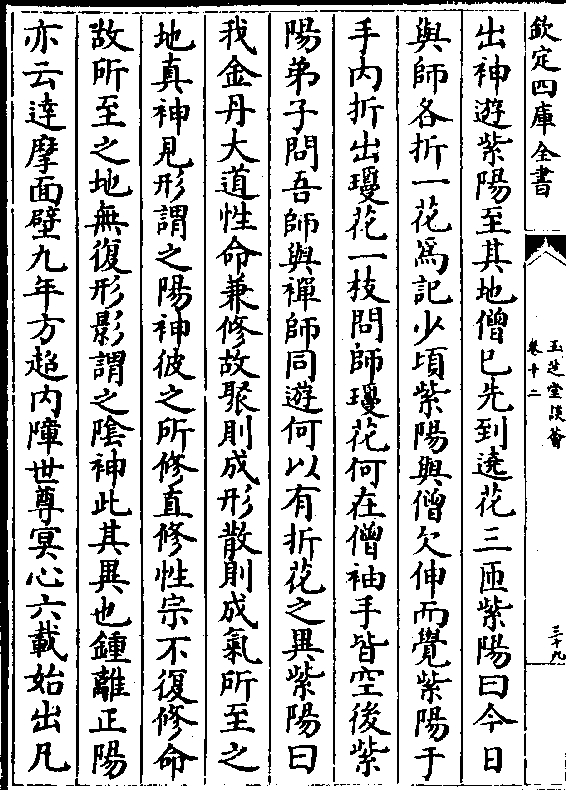 欽定四庫全書
玉芝堂談薈
卷十二
三十九
出神遊紫陽至其地僧已先到遶花三匝紫陽曰今日
與師各折一花爲記少頃紫陽與僧欠伸而覺紫陽于
手内折出瓊花一枝問師瓊花何在僧袖手皆空後紫
陽弟子問吾師與禪師同遊何以有折花之異紫陽曰
我金丹大道性命兼修故聚則成形散則成氣所至之
地真神見形謂之陽神彼之所修直修性宗不復修命
故所至之地無復形影謂之陰神此其異也鍾離正陽
亦云達摩面壁九年方超内障世尊冥心六載始出凡